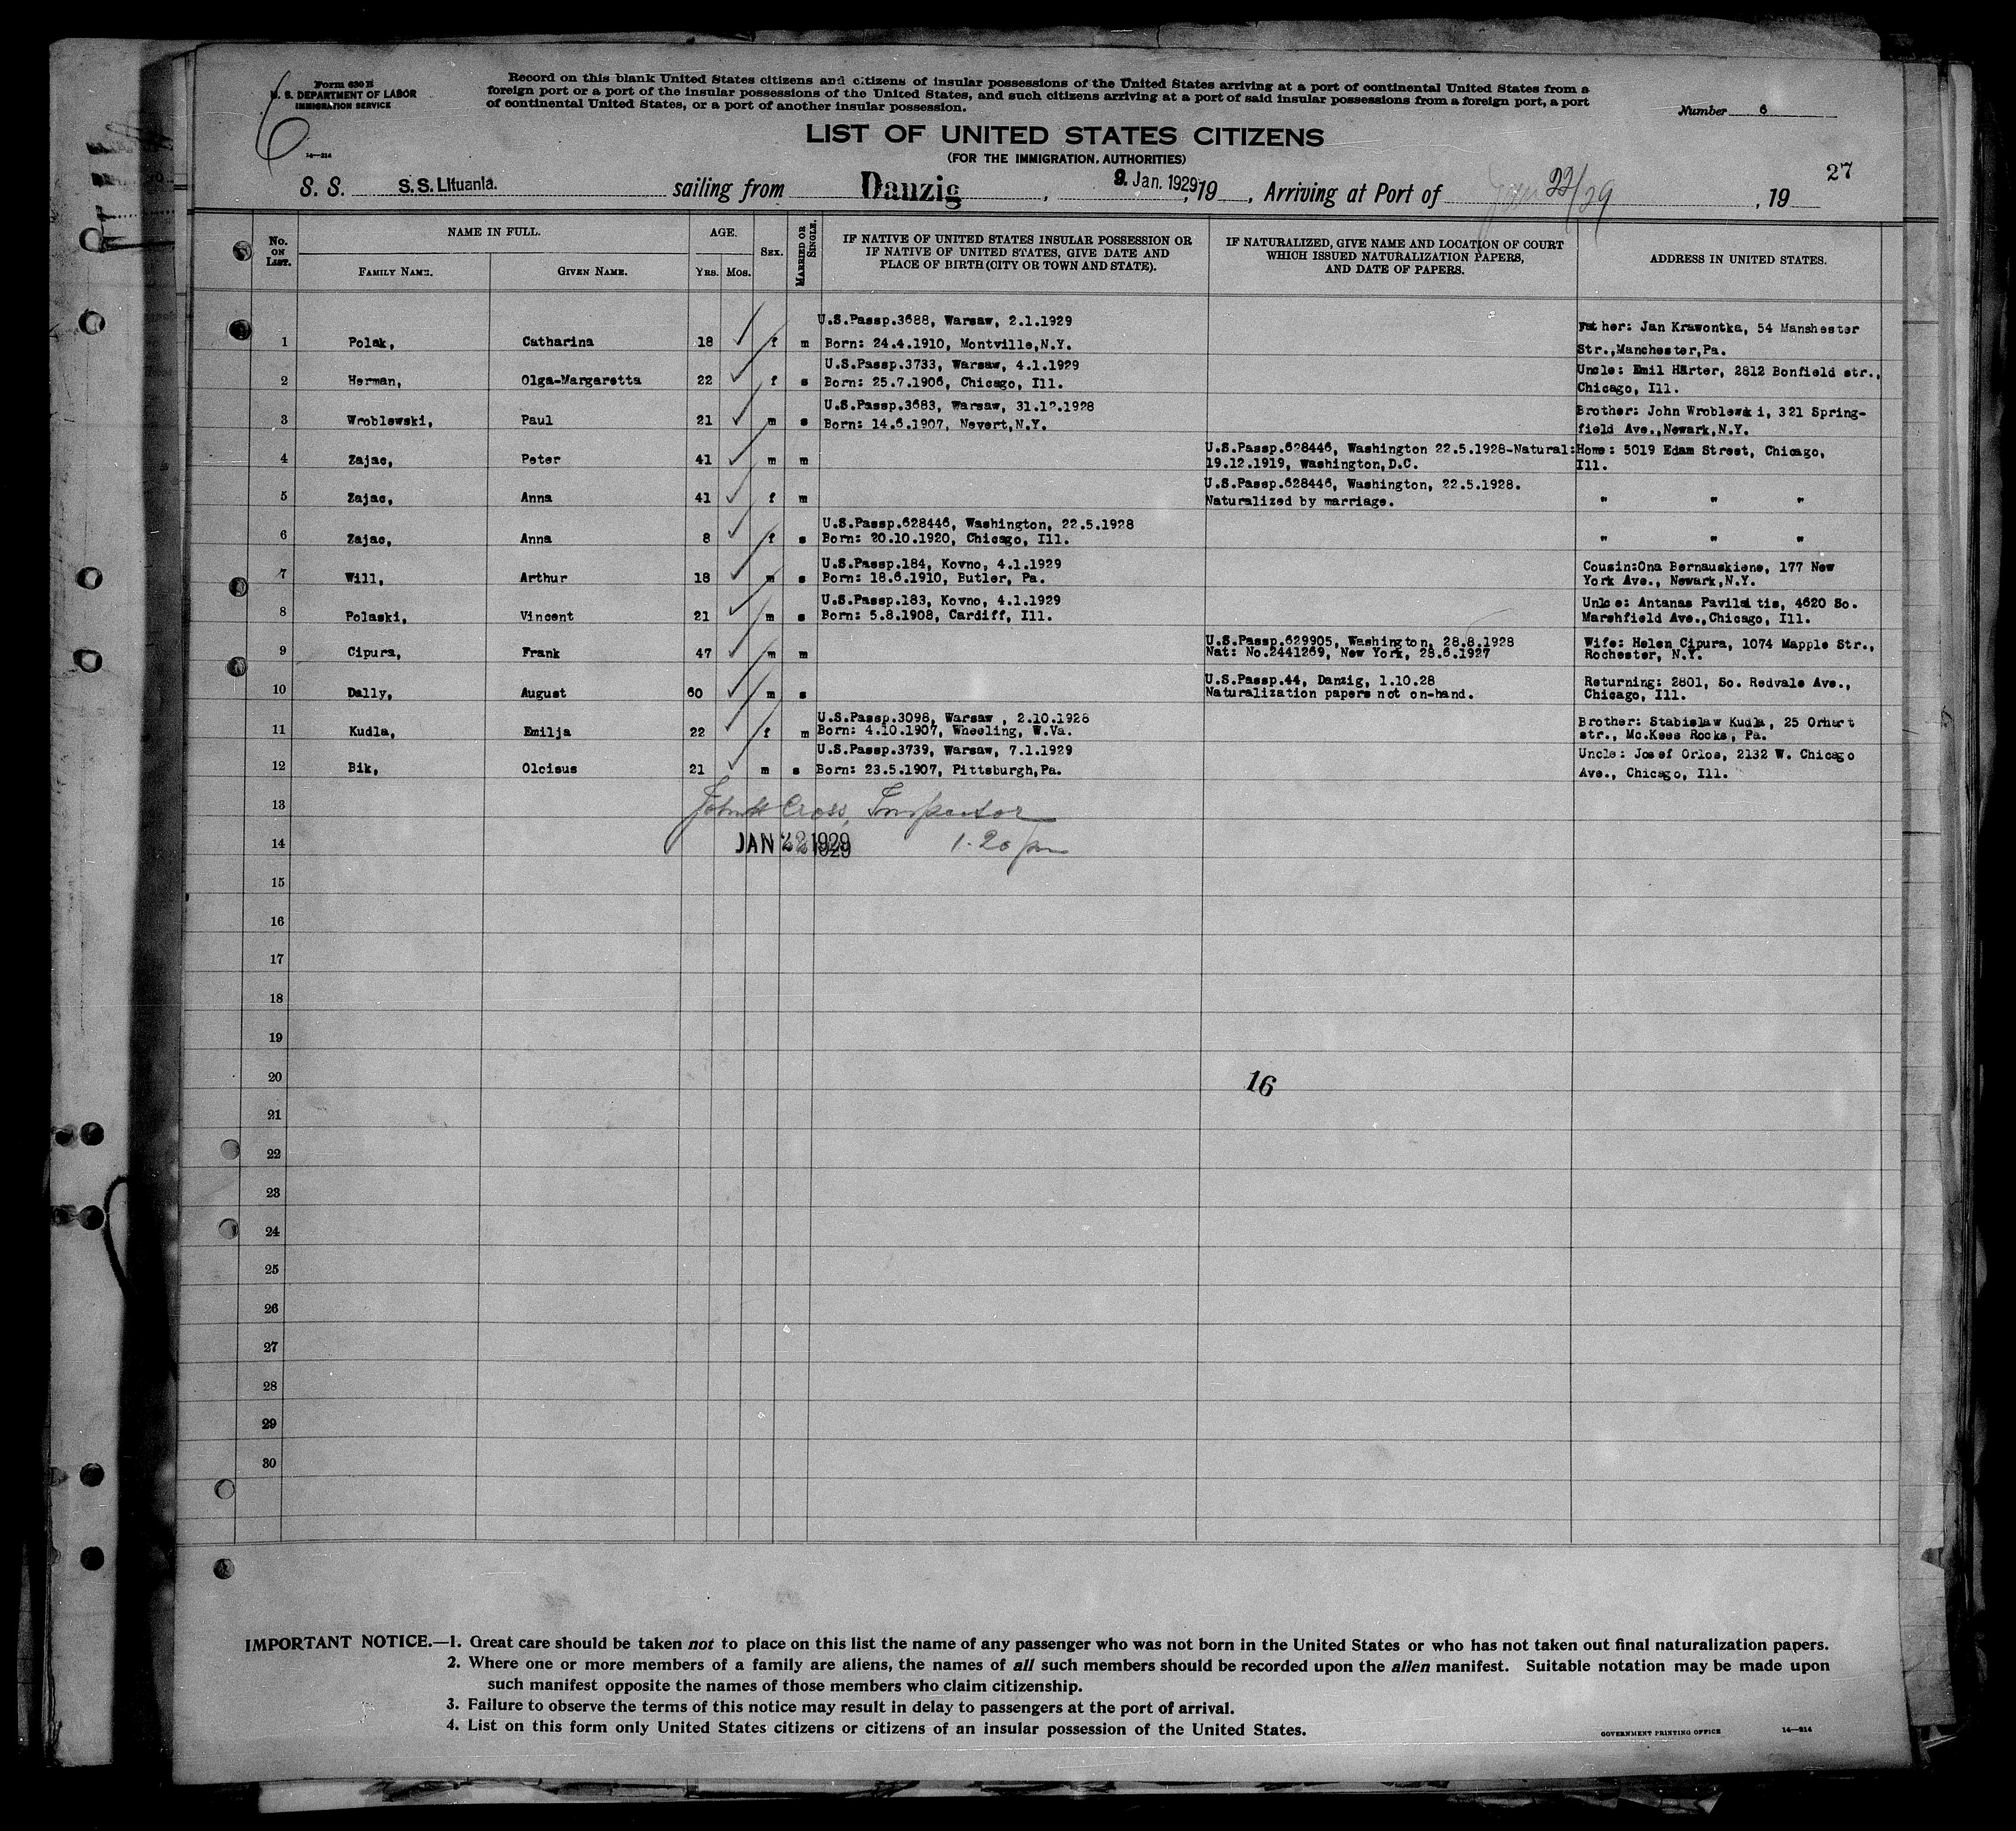 6
Form 630 B
U. S. DEPARTMENT OF LABOR
IMMIGRATION SERVICE
14—214
Record on this blank United States citizens and citizens of insular possessions of the United States arriving at a port of continental United States from a
foreign port or a port of the insular possessions of the United States, and such citizens arriving at a port of said insular possessions from a foreign port, a port
of continental United States, or a port of another insular possession.
Number 6
LIST OF UNITED STATES CITIZENS
(FOR THE IMMIGRATION AUTHORITIES)
27
S. S. S.S. Lituania. sailing from Danzig, 9. Jan. 1929, 19 , Arriving at Port of 22/29 , 19
No. ON LIST. NAME IN FULL. AGE. SEX. MARRIED OR SINGLE. IF NATIVE OF UNITED STATES INSULAR POSSESSION OR IF NATIVE OF UNITED STATES, GIVE DATE AND PLACE OF BIRTH (CITY OR TOWN AND STATE). IF NATURALIZED, GIVE NAME AND LOCATION OF COURT WHICH ISSUED NATURALIZATION PAPERS, AND DATE OF PAPERS. ADDRESS IN UNITED STATES.
FAMILY NAME. GIVEN NAME. YRS. MOS.
U.S.Passp.3688, Warsaw, 2.1.1929 Father: Jan Krawontka, 54 Manshester
1 Polak, Catharina 18 f m Born: 24.4.1910, Montville,N.Y. Str.,Manchester,Pa.
U.S.Passp.3733, Warsaw, 4.1.1929 Uncle: Emil Härter, 2812 Bonfield str.,
2 Herman, Olga-Margaretta 22 f s Born: 25.7.1906, Chicago, Ill. Chicago, Ill.
U.S.Passp.3683, Warsaw, 31.12.1928 Brother: John Wroblewski, 321 Spring-
3 Wroblewski, Paul 21 m s Born: 14.6.1907, Nevert,N.Y. field Ave.,Newark,N.Y.
U.S.Passp.628446, Washington 22.5.1928-Natural: Home: 5019 Edam Street, Chicago,
4 Zajac, Peter 41 m m 19.12.1919, Washington,D.C. Ill.
U.S.Passp.628446, Washington, 22.5.1928.
5 Zajac, Anna 41 f m Naturalized by marriage. " " "
U.S.Passp.628446, Washington, 22.5.1928
6 Zajac, Anna 8 f s Born: 20.10.1920, Chicago, Ill. " " "
U.S.Passp.184, Kovno, 4.1.1929 Cousin:Ona Bernauskiene, 177 New
7 Will, Arthur 18 m s Born: 18.6.1910, Butler, Pa. York Ave., Newark,N.Y.
U.S.Passp.183, Kovno, 4.1.1929 Unlce: Antanas Pavilaitis, 4620 So.
8 Polaski, Vincent 21 m s Born: 5.8.1908, Cardiff, Ill. Marshfield Ave.,Chicago, Ill.
U.S.Passp.629905, Washington, 28.8.1928 Wife: Helen Cipura, 1074 Mapple Str.,
9 Cipura, Frank 47 m m Nat: No.2441269, New York, 28.6.1927 Rochester, N.Y.
U.S.Passp.44, Danzig, 1.10.28 Returning: 2801, So. Redvale Ave.,
10 Dally, August 60 m s Naturalization papers not on-hand. Chicago, Ill.
U.S.Passp.3098, Warsaw , 2.10.1928 Brother: Stabislaw Kudla, 25 Orhart
11 Kudla, Emilja 22 f m Born: 4.10.1907, Wheeling, W.Va. str., Mc.Kees Rocks, Pa.
U.S.Passp.3739, Warsaw, 7.1.1929 Uncle: Josef Orlos, 2132 W. Chicago
12 Bik, Olcisus 21 m s Born: 23.5.1907, Pittsburgh,Pa. Ave., Chicago, Ill.
13 John H Cross, Inspector
14 JAN 22 1929 1.20 pm
15
16
17
18
19
20 16
21
22
23
24
25
26
27
28
29
30
IMPORTANT NOTICE.—1. Great care should be taken not to place on this list the name of any passenger who was not born in the United States or who has not taken out final naturalization papers.
2. Where one or more members of a family are aliens, the names of all such members should be recorded upon the alien manifest. Suitable notation may be made upon
such manifest opposite the names of those members who claim citizenship.
3. Failure to observe the terms of this notice may result in delay to passengers at the port of arrival.
4. List on this form only United States citizens or citizens of an insular possession of the United States.
GOVERNMENT PRINTING OFFICE 14—214